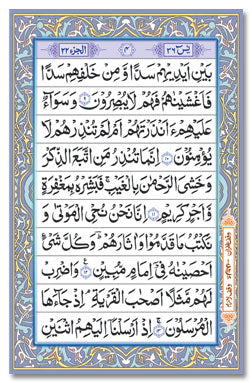 الجزء ٢٢ ٣ يس ٣٦
بَيْنِ اَيْدِيْهِمْ سَدًّا وَّ مِنْ خَلْفِهِمْ سَدًّا
فَاَغْشَيْنٰهُمْ فَهُمْ لَا يُبْصِرُوْنَ ۝٩ وَسَوَآءٌ
عَلَيْهِمْ ءَاَنْذَرْتَهُمْ اَمْ لَمْ تُنْذِرْهُمْ لَا
يُؤْمِنُوْنَ ۝١٠ اِنَّمَا تُنْذِرُ مَنِ اتَّبَعَ الذِّكْرَ
وَ خَشِيَ الرَّحْمٰنَ بِالْغَيْبِ ۚ فَبَشِّرْهُ بِمَغْفِرَةٍ
وَّ اَجْرٍ كَرِيْمٍ ۝١١ اِنَّا نَحْنُ نُحْيِ الْمَوْتٰى وَ
نَكْتُبُ مَا قَدَّمُوْا وَ اٰثَارَهُمْ ۛؕ وَ كُلَّ شَيْءٍ
اَحْصَيْنٰهُ فِيْۤ اِمَامٍ مُّبِيْنٍ ۝١٢ وَ اضْرِبْ
لَهُمْ مَّثَلًا اَصْحٰبَ الْقَرْيَةِ ۘ اِذْ جَآءَهَا
الْمُرْسَلُوْنَ ۝١٣ اِذْ اَرْسَلْنَاۤ اِلَيْهِمُ اثْنَيْنِ